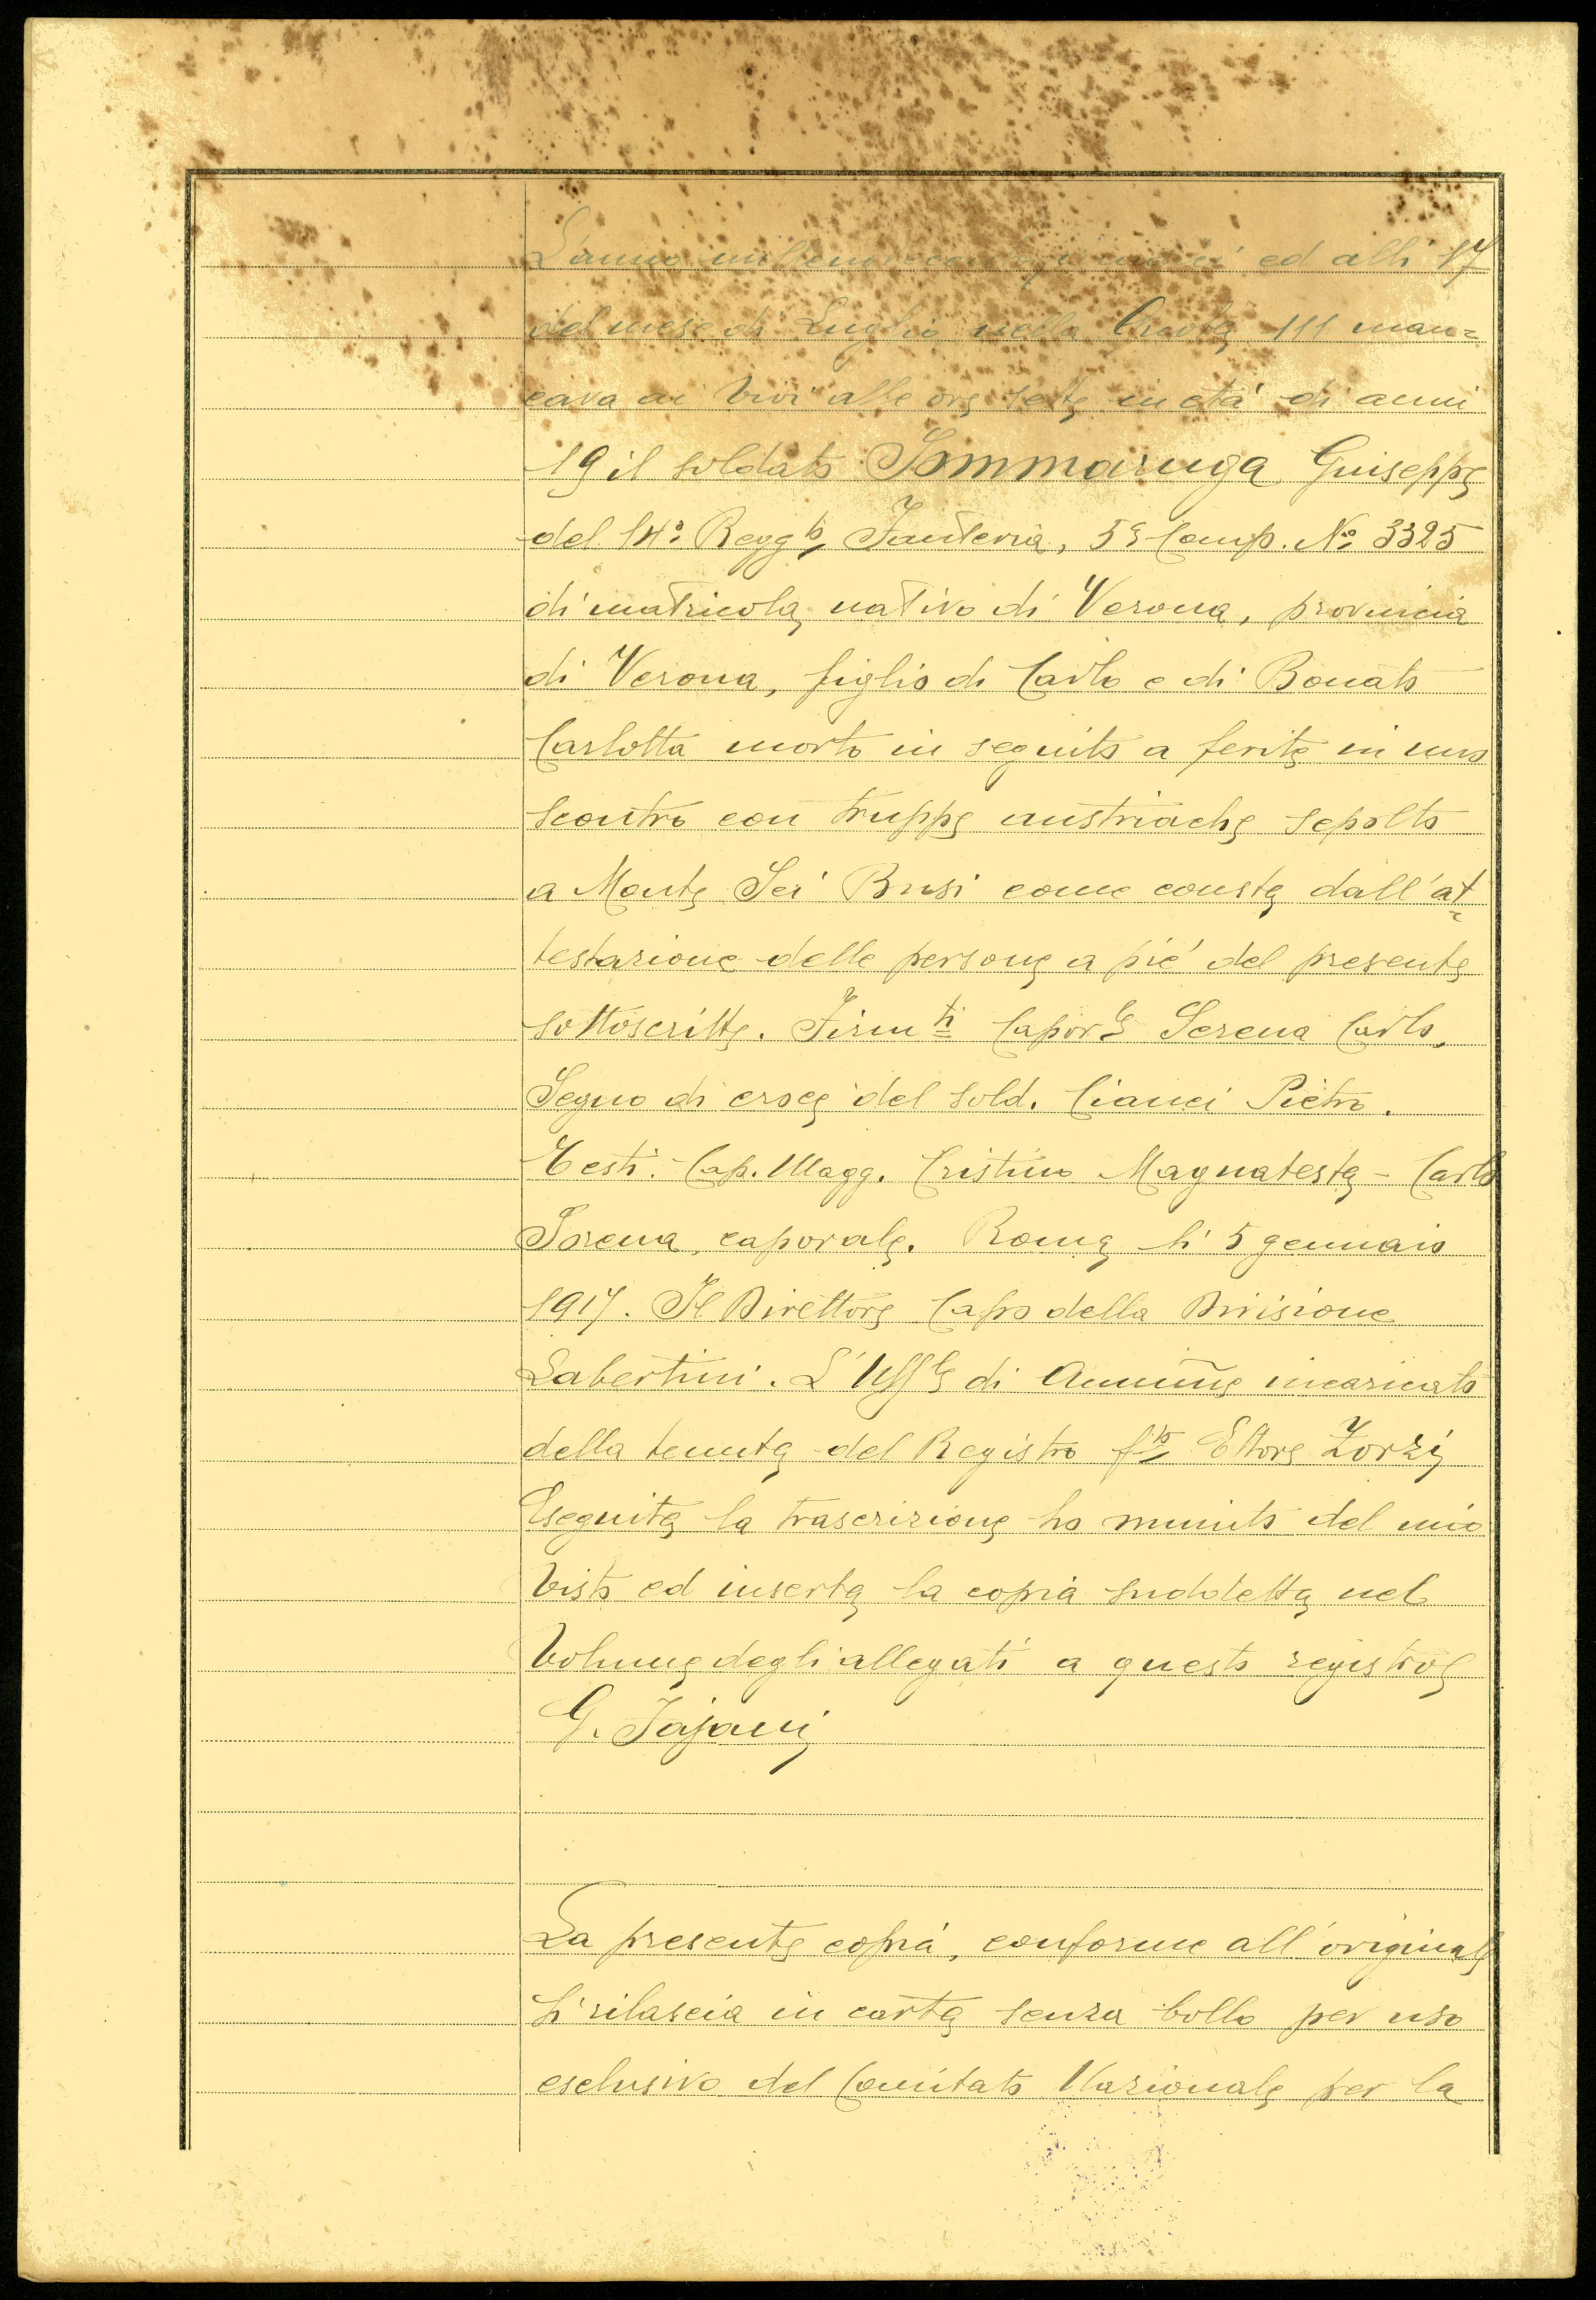 L'anno millenovecentoquindici ed alli 17
del mese di Luglio nella Quota 111 man=
cava ai vivi alle ore sette in età di anni
19 il soldato Sommaruga Giuseppe
del 14° Regg.to Fanteria, 5a Comp. N° 3325
di matricola nativo di Verona, provincia
di Verona, figlio di Carlo e di Bonato
Carlotta morto in seguito a ferite in uno
scontro con truppe austriache sepolto
a Monte Sei Busi come consta dall'at=
testazione delle persone a piè del presente
sottoscritte. Firm.ti Capor.le Serena Carlo,
Segno di croce del sold. Cianci Pietro.
Testi: Cap. Magg. Cristino Magnatesta - Carlo
Serena, caporale. Roma lì 5 gennaio
1917. Il Direttore Capo della Divisione
Labertini. L'Uff.le di Ammne incaricato
della tenuta del Registro f.to Ettore Zorzi
Eseguita la trascrizione ho munito del mio
visto ed inserta la copia suddetta nel
volume degli allegati a questo registro
G. Tajani
La presente copia, conforme all'originale
si rilascia in carta senza bollo per uso
esclusivo del Comitato Nazionale per la